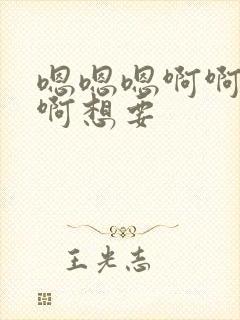 嗯嗯嗯啊啊
啊想要
王光志